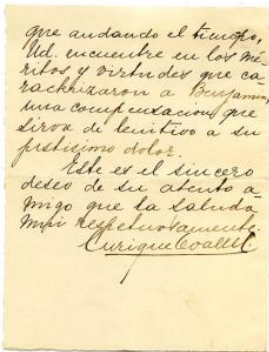 que andando el tiempo,
Ud. encuentre en los mé-
ritos y virtudes que ca-
racterizaron a Benjamin,
una compensacion que
sirva de lenitivo a su
justisimo dolor.
Este es el sincero
deseo de su atento a-
migo que la saluda
mui respetuosamente
Enrique Ovalle C.